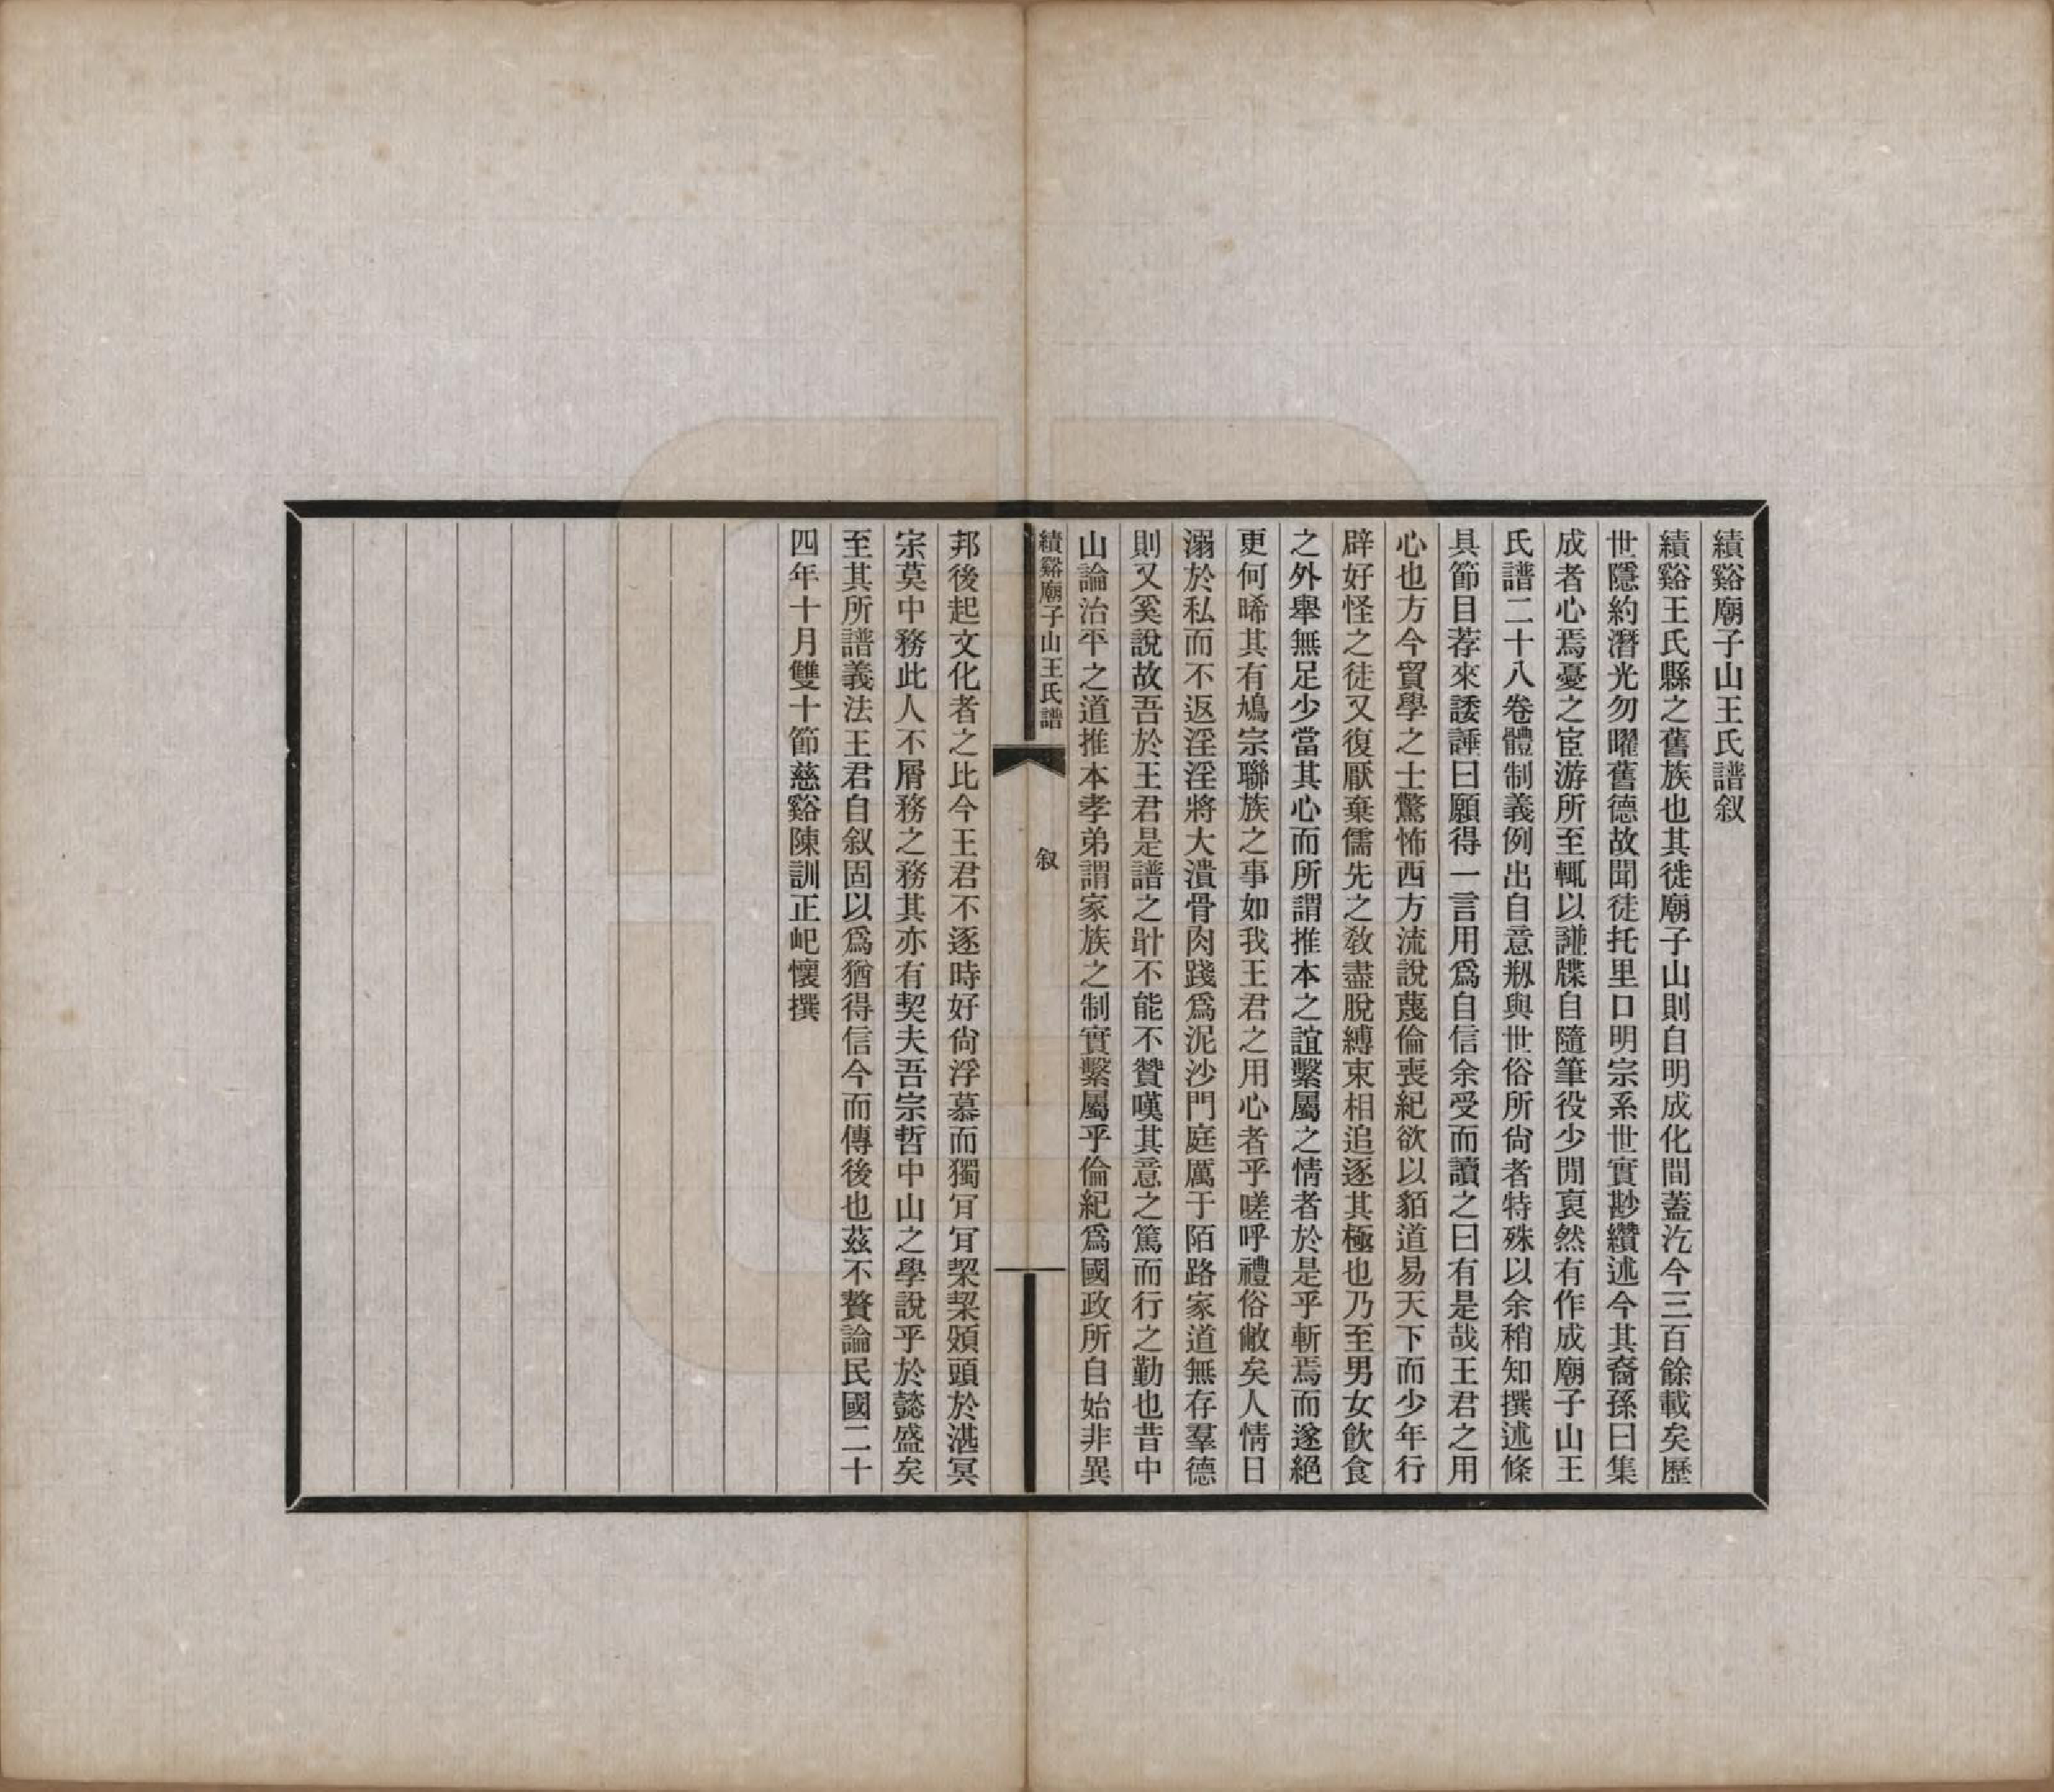 績谿廟子山王氏譜叙
績谿王氏縣之舊族也其徙廟子山則自明成化間蓋汔今三百餘載矣歷
世隱約潛光勿曜舊德故聞徒托里口明宗系世實尠纘述今其裔孫曰集
成者心焉憂之宦游所至輒以譜牒自隨筆役少閒裒然有作成廟子山王
氏譜二十八卷體制義例出自意剏與世俗所尙者特殊以余稍知撰述條
具節目荐來諉諈曰願得一言用爲自信余受而讀之曰有是哉王君之用
心也方今貿學之士驚怖西方流說蔑倫喪紀欲以貊道易天下而少年行
辟好怪之徒又復厭棄儒先之敎盡脫縛束相追逐其極也乃至男女飮食
之外舉無足少當其心而所謂推本之誼繫屬之情者於是乎斬焉而遂絕
更何晞其有鳩宗聯族之事如我王君之用心者乎嗟呼禮俗敝矣人情日
溺於私而不返淫淫將大潰骨肉踐爲泥沙門庭厲于陌路家道無存羣德
則又奚說故吾於王君是譜之眎不能不贊嘆其意之篤而行之勤也昔中
山論治平之道推本孝弟謂家族之制實繫屬乎倫紀爲國政所自始非異
績谿廟子山王氏譜
叙
一
邦後起文化者之比今王君不逐時好尙浮慕而獨㝐㝐栔栔頫頭於湛冥
宗莫中務此人不屑務之務其亦有契夫吾宗哲中山之學說乎於懿盛矣
至其所譜義法王君自叙固以爲猶得信今而傳後也茲不贅論民國二十
四年十月雙十節慈谿陳訓正屺懷撰